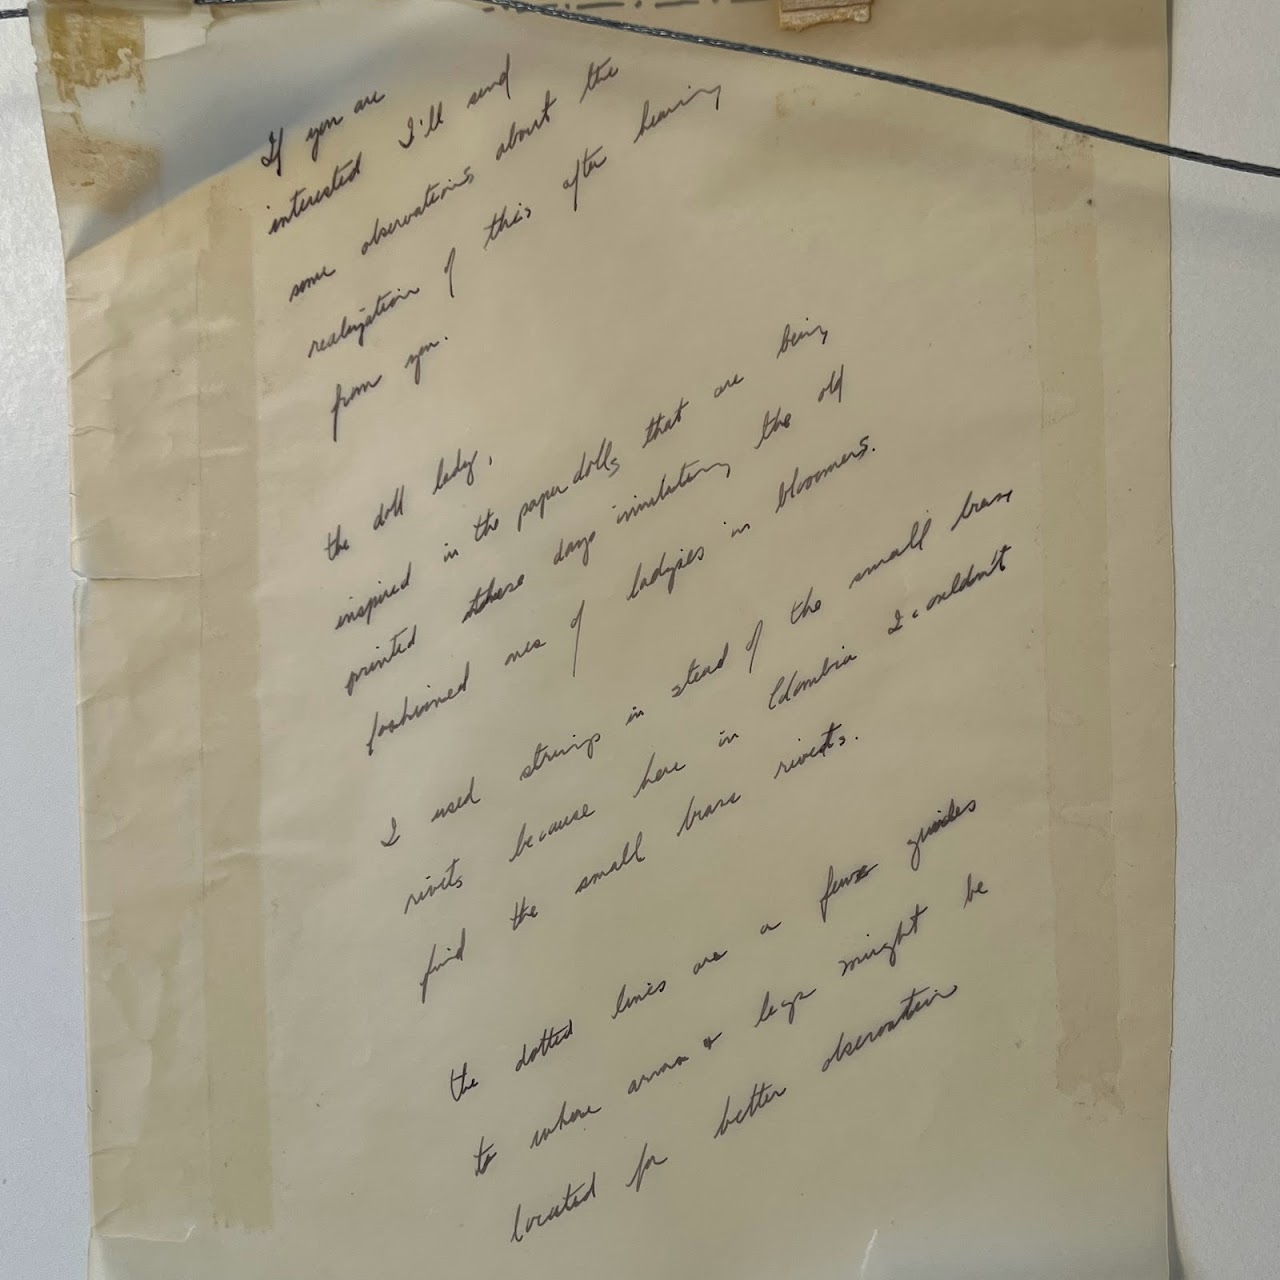 If you are
interested I'll send
some observations about the
realization of this after hearing
from you.
the doll lady,
inspired in the paper dolls that are being
printed these days imitating the old
fashioned ones of ladysies in bloomers.
I used strings in stead of the small brass
rivits because here in Colombia I couldn't
find the small brass rivets.
the dotted lines are a few guides
to where arms & legs might be
located for better observation